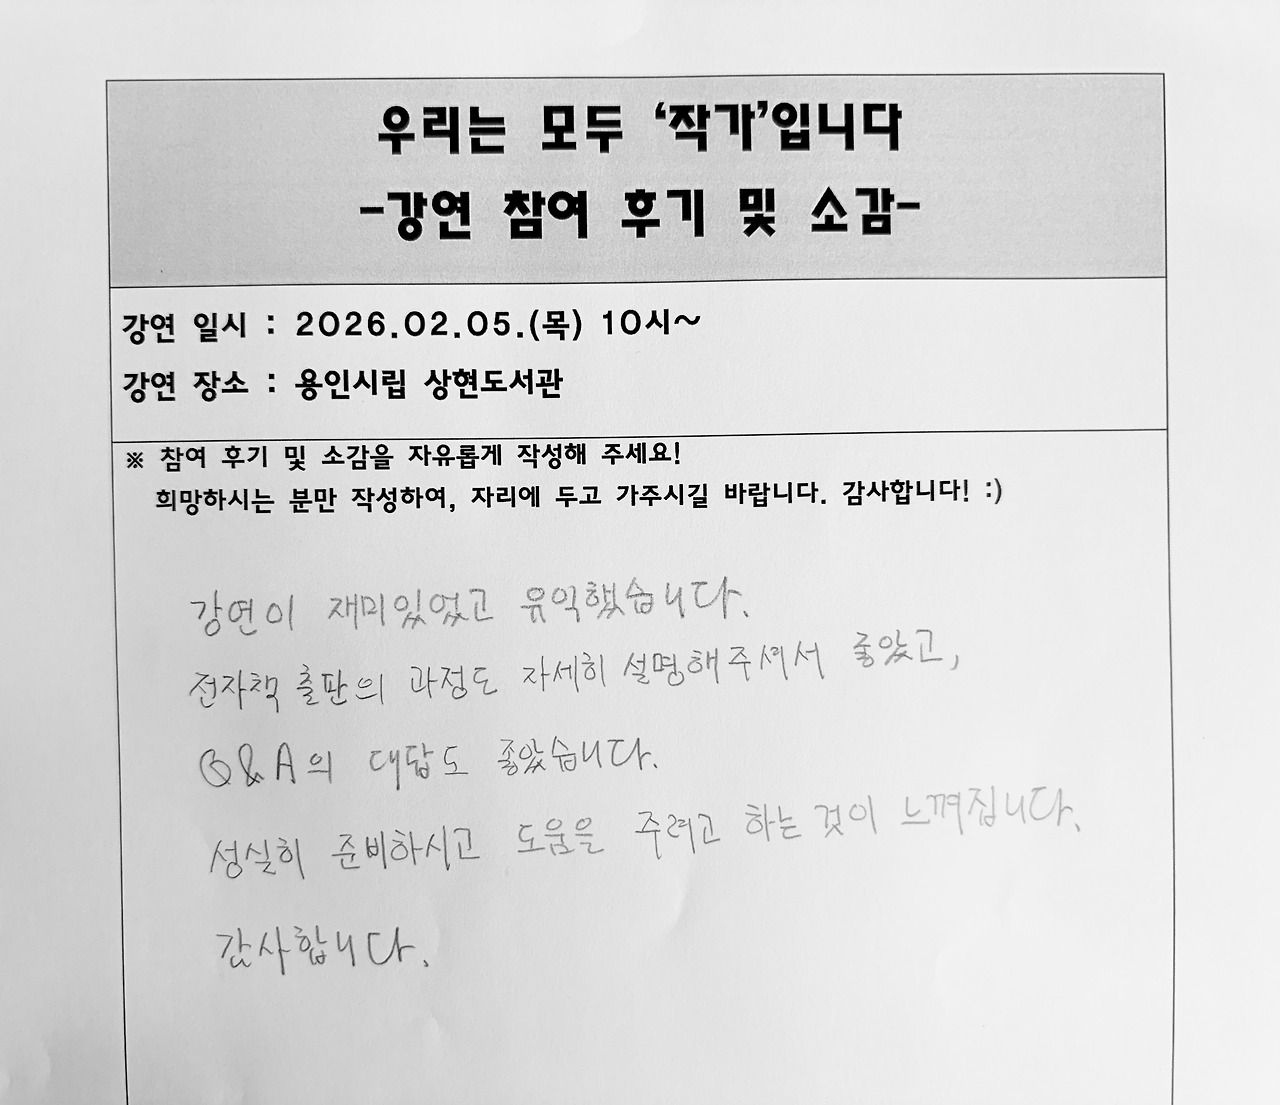 우리는 모두 ‘작가’입니다
-강연 참여 후기 및 소감-
강연 일시 : 2026.02.05.(목) 10시~
강연 장소 : 용인시립 상현도서관
※ 참여 후기 및 소감을 자유롭게 작성해 주세요!
희망하시는 분만 작성하여, 자리에 두고 가주시길 바랍니다. 감사합니다! :)
강연이 재미있었고 유익했습니다.
전자책 출판의 과정도 자세히 설명해주셔서 좋았고,
Q&A의 대답도 좋았습니다.
성실히 준비하시고 도움을 주려고 하는 것이 느껴집니다.
감사합니다.